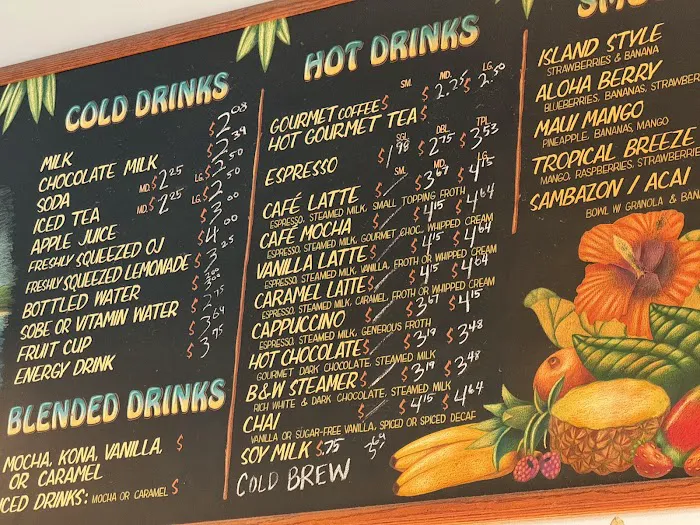 COLD DRINKS
MILK $2.08
CHOCOLATE MILK $2.39
SODA MD. $2.25 LG. $2.50
ICED TEA MD. $2.25 LG. $2.50
APPLE JUICE $3.00
FRESHLY SQUEEZED OJ $4.00
FRESHLY SQUEEZED LEMONADE $3.25
BOTTLED WATER $
SOBE OR VITAMIN WATER $2.75
FRUIT CUP $3.64
ENERGY DRINK $3.75
BLENDED DRINKS
MOCHA, KONA, VANILLA, $
OR CARAMEL
ICED DRINKS: MOCHA OR CARAMEL $
HOT DRINKS
SM. MD. LG.
GOURMET COFFEE $ $2.25 $2.50
HOT GOURMET TEA $
SGL. DBL. TPL.
ESPRESSO $1.98 $2.75 $3.53
SM. MD. LG.
CAFÉ LATTE $ $3.67 $4.15
ESPRESSO, STEAMED MILK, SMALL TOPPING FROTH
CAFÉ MOCHA $ $4.15 $4.64
ESPRESSO, STEAMED MILK, GOURMET CHOC., WHIPPED CREAM
VANILLA LATTE $ $4.15 $4.64
ESPRESSO, STEAMED MILK, VANILLA, FROTH OR WHIPPED CREAM
CARAMEL LATTE $ $4.15 $4.64
ESPRESSO, STEAMED MILK, CARAMEL, FROTH OR WHIPPED CREAM
CAPPUCCINO $ $3.67 $4.15
ESPRESSO, STEAMED MILK, GENEROUS FROTH
HOT CHOCOLATE $ $3.19 $3.48
GOURMET DARK CHOCOLATE, STEAMED MILK
B&W STEAMER $ $3.19 $3.48
RICH WHITE & DARK CHOCOLATE, STEAMED MILK
CHAI $ $4.15 $4.64
VANILLA OR SUGAR-FREE VANILLA, SPICED OR SPICED DECAF
SOY MILK $.75
COLD BREW
ISLAND STYLE
STRAWBERRIES & BANANA
ALOHA BERRY
BLUEBERRIES, BANANAS, STRAWBER
MAUI MANGO
PINEAPPLE, BANANAS, MANGO
TROPICAL BREEZE
MANGO, RASPBERRIES, STRAWBERRIE
SAMBAZON / ACAI
BOWL W/ GRANOLA & BANA